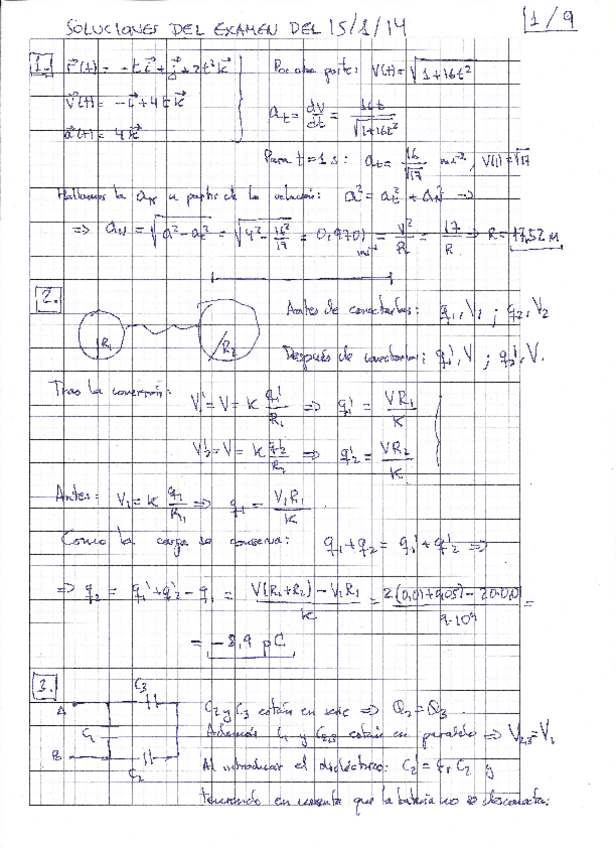 SOLUCIONES DEL EXAMEN DEL 15/1/14
1/9
1. r⃗(t) = -t i⃗ + j⃗ + 2t² k⃗
v⃗(t) = -i⃗ + 4t k⃗
a⃗(t) = 4 k⃗
Por otra parte: V(t) = √(1+16t²)
a_t = dv/dt = 16t/√(1+16t²)
Para t=1 s: a_t = 16/√17 ms⁻², V(1) = √17
Hallamos la a_N a partir de la relación: a² = a_t² + a_N² →
⇒ a_N = √(a² - a_t²) = √(4² - 16²/17) = 0,970 ms⁻² = V²/R = 17/R ⇒ R = 17,52 m
2.
R₁
R₂
Antes de conectarlas: q₁, V₁ ; q₂, V₂
Después de conectarlas: q₁', V ; q₂', V.
Tras la conexión:
V₁' = V = K q₁'/R₁ ⇒ q₁' = VR₁/K
V₂' = V = K q₂'/R₂ ⇒ q₂' = VR₂/K
Antes: V₁ = K q₁/R₁ ⇒ q₁ = V₁R₁/K.
Como la carga se conserva: q₁ + q₂ = q₁' + q₂' ⇒
⇒ q₂ = q₁' + q₂' - q₁ = (V(R₁+R₂) - V₁R₁)/K = /9·10⁹ =
= -8,9 pC
3.
C₃
A
C₁
B
C₂
C₂ y C₃ están en serie ⇒ Q₂ = Q₃.
Además C₁ y C₂,₃ están en paralelo ⇒ V₂,₃ = V₁
Al introducir el dieléctrico: C₂' = C₂ y
teniendo en cuenta que la batería no se desconecta: